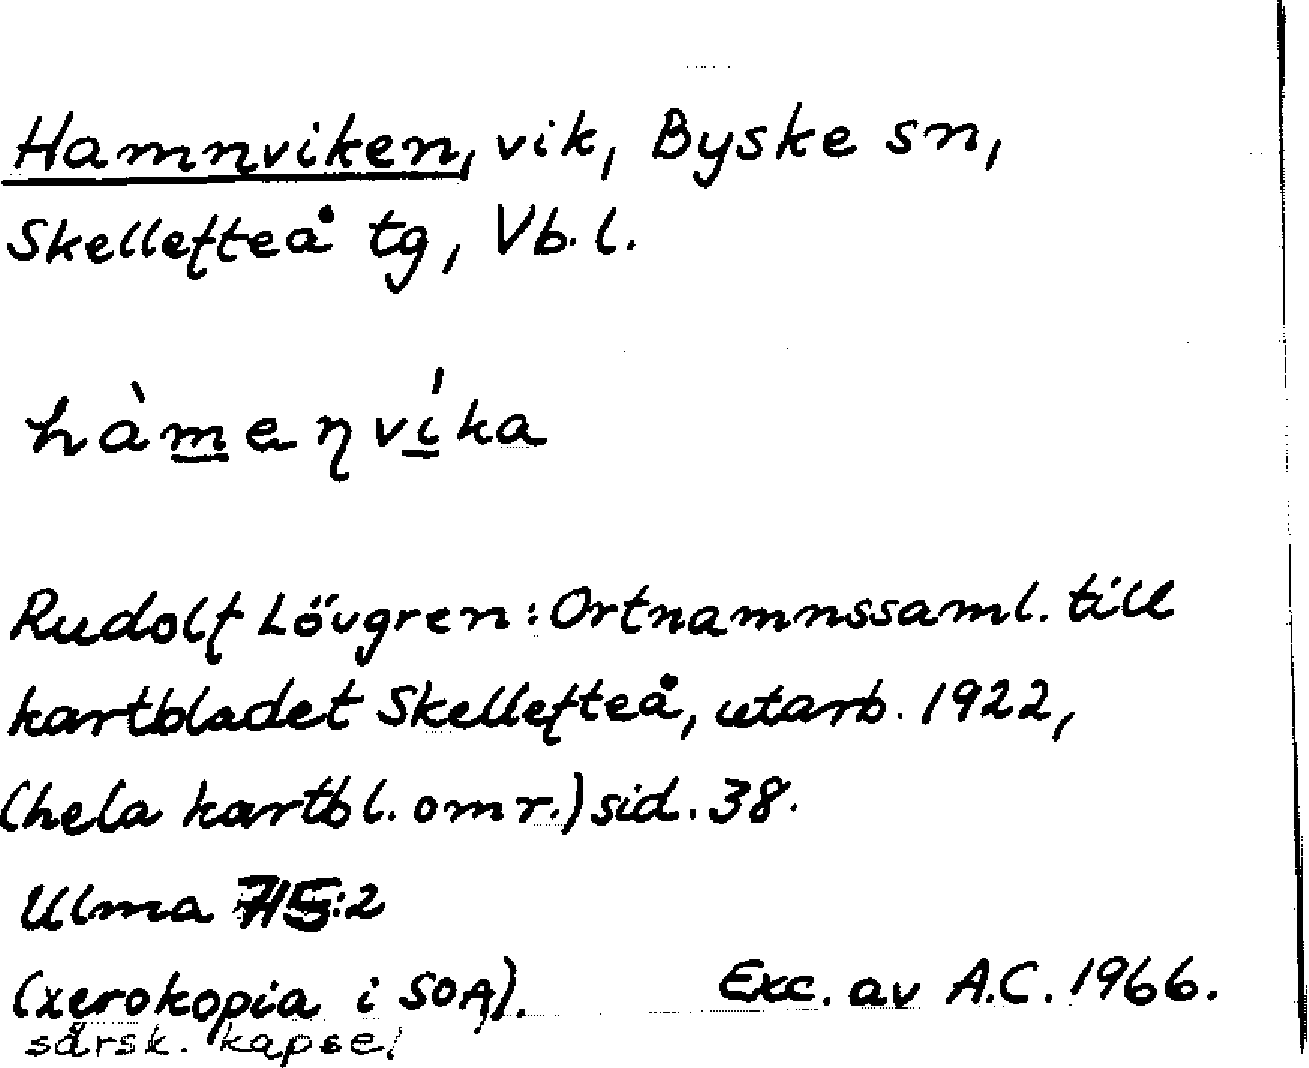 Hamnviken, vik, Byske sn,
Skellefteå tg, Vb. l.
hàmenvíka
Rudolf Lövgren: Ortnamnssaml. till
kartbladet Skellefteå, utarb. 1922,
(hela kartbl. omr.) sid. 38.
Ulma 715:2
(xerokopia i SOA). Exc. av A.C. 1966.
särsk. kapsel